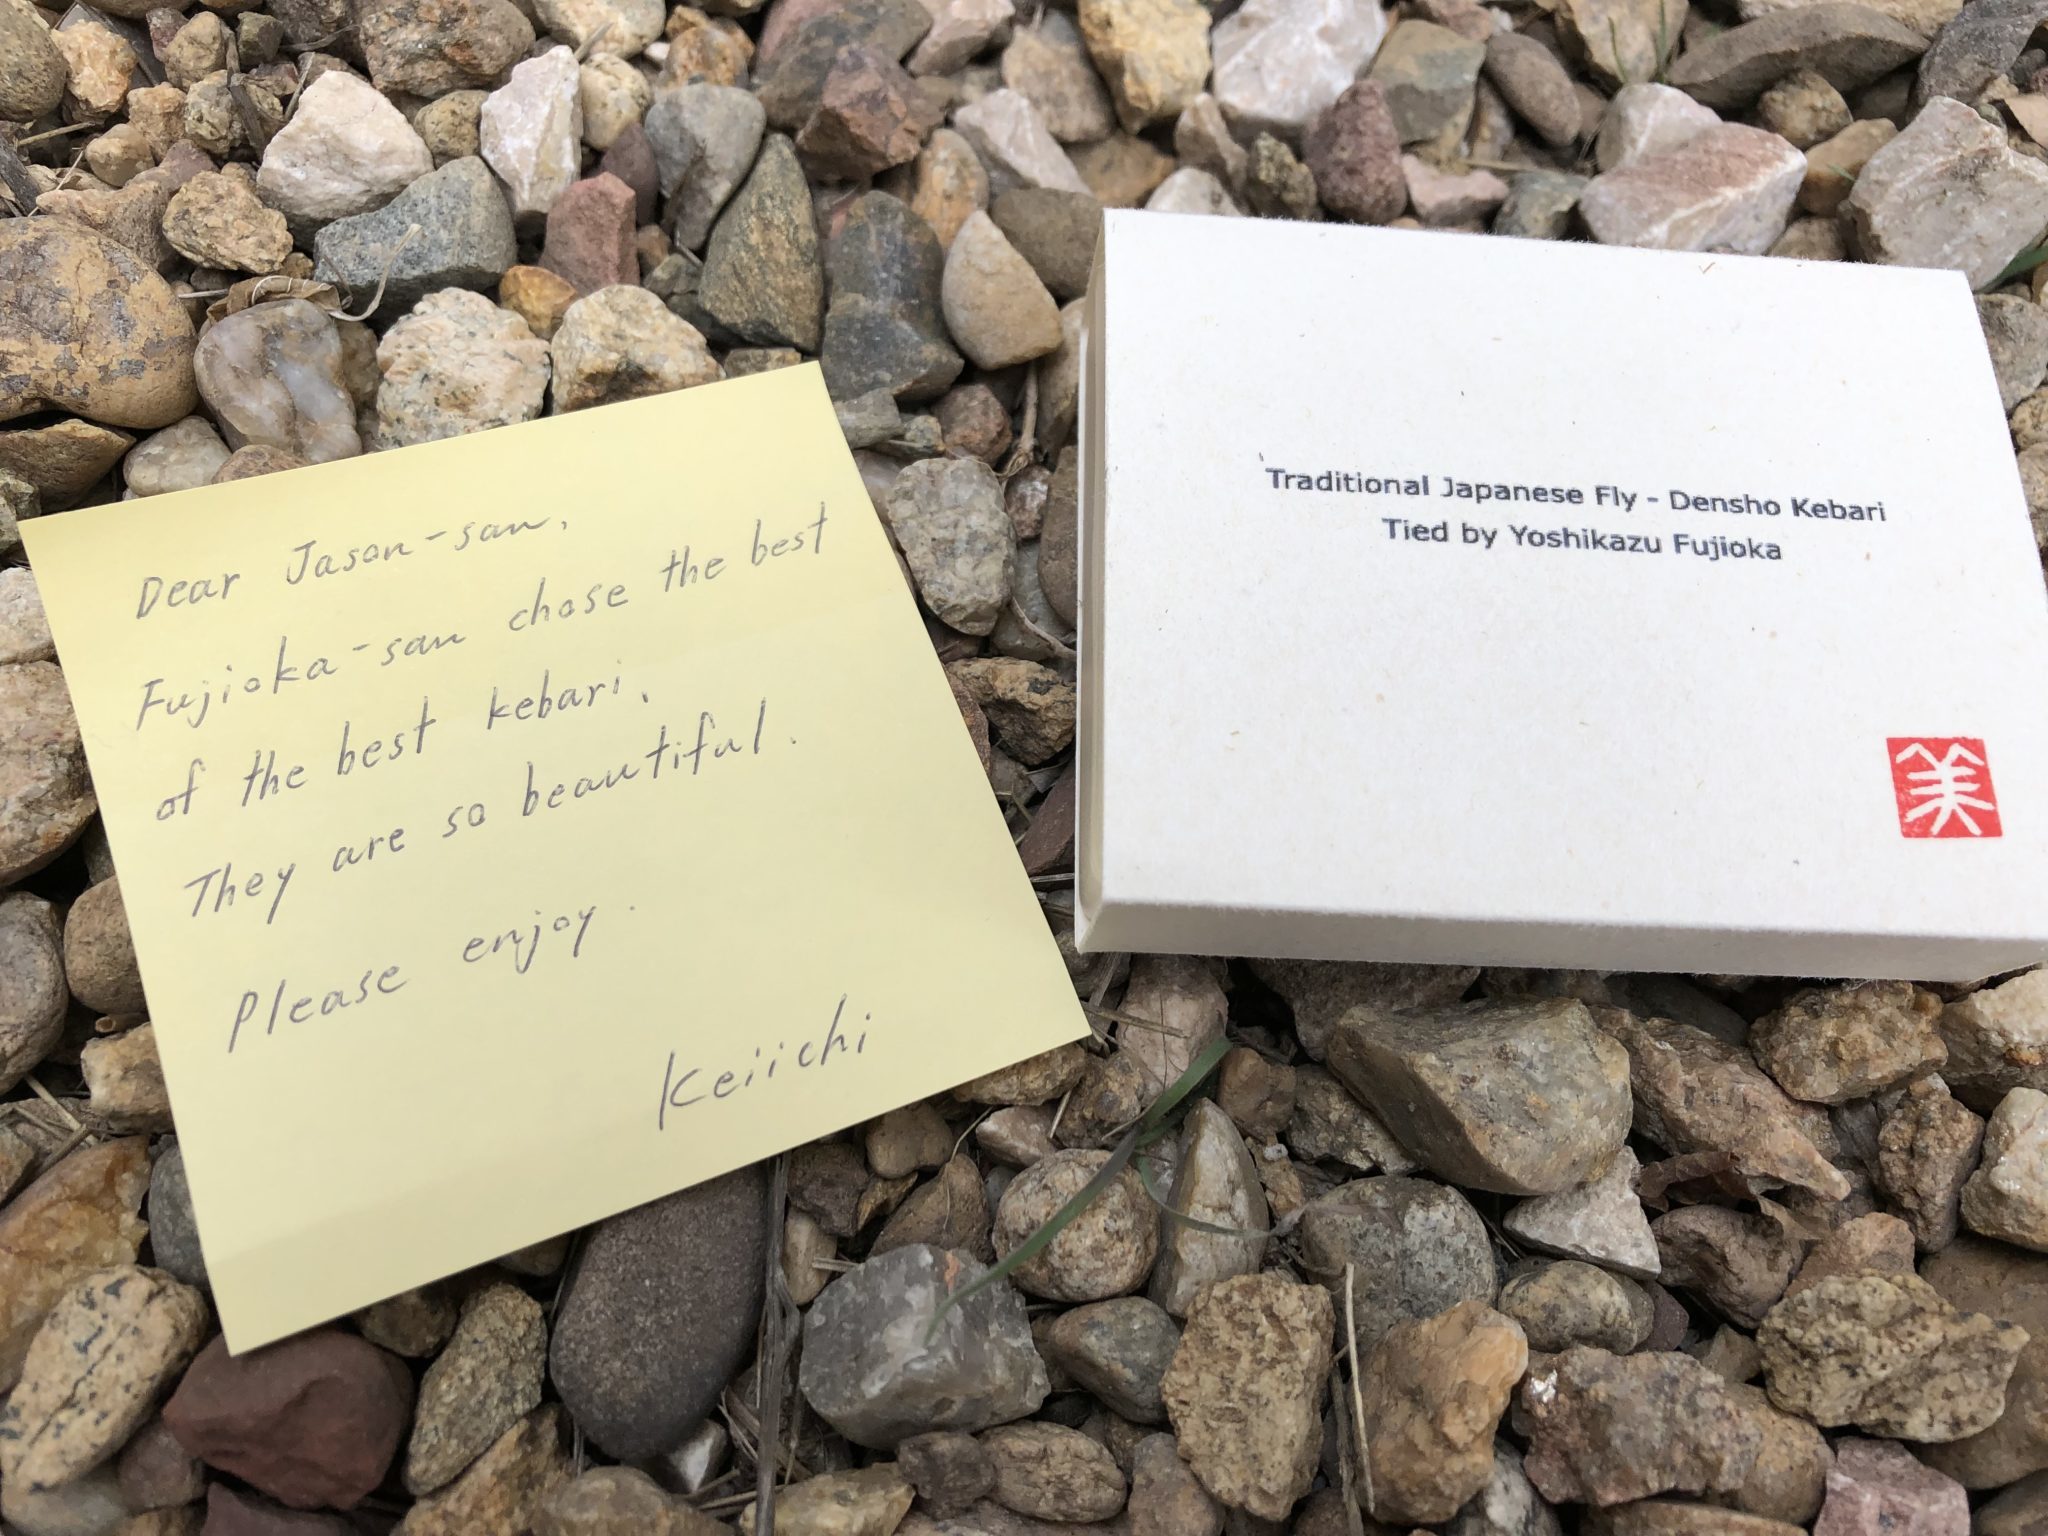 Dear Jason-san,
Fujioka-san chose the best
of the best kebari.
They are so beautiful.
Please enjoy.
Keiichi
Traditional Japanese Fly - Densho Kebari
Tied by Yoshikazu Fujioka
美